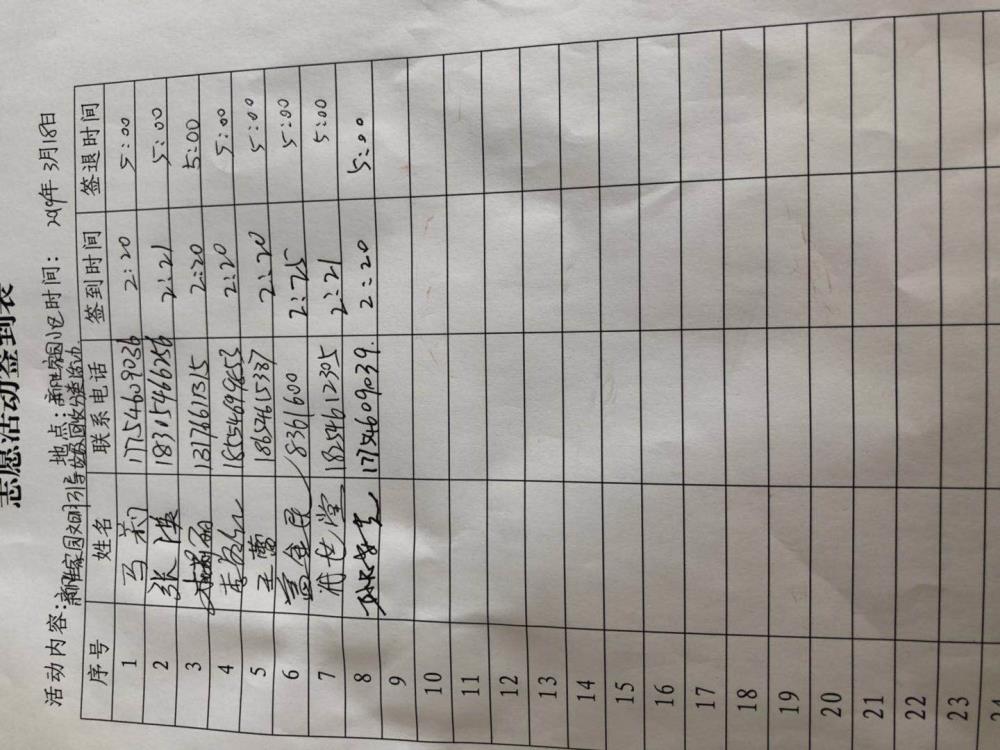 志愿活动签到表
活动内容: 新淮家园文明引导垃圾回收分类活动 地点: 新淮家园小区 时间: 2019年3月18日
序号 姓名 联系电话 签到时间 签退时间
1 马莉 17754609036 2:20 5:00
2 张瑛 18315466256 2:21 5:00
3 13176611315 2:20 5:00
4 18554699853 2:20 5:00
5 王蕾 18654615387 2:20 5:00
6 8361600 2:25 5:00
7 18254612305 2:21 5:00
8 17754609039. 2:20 5:00
9
10
11
12
13
14
15
16
17
18
19
20
21
22
23
24